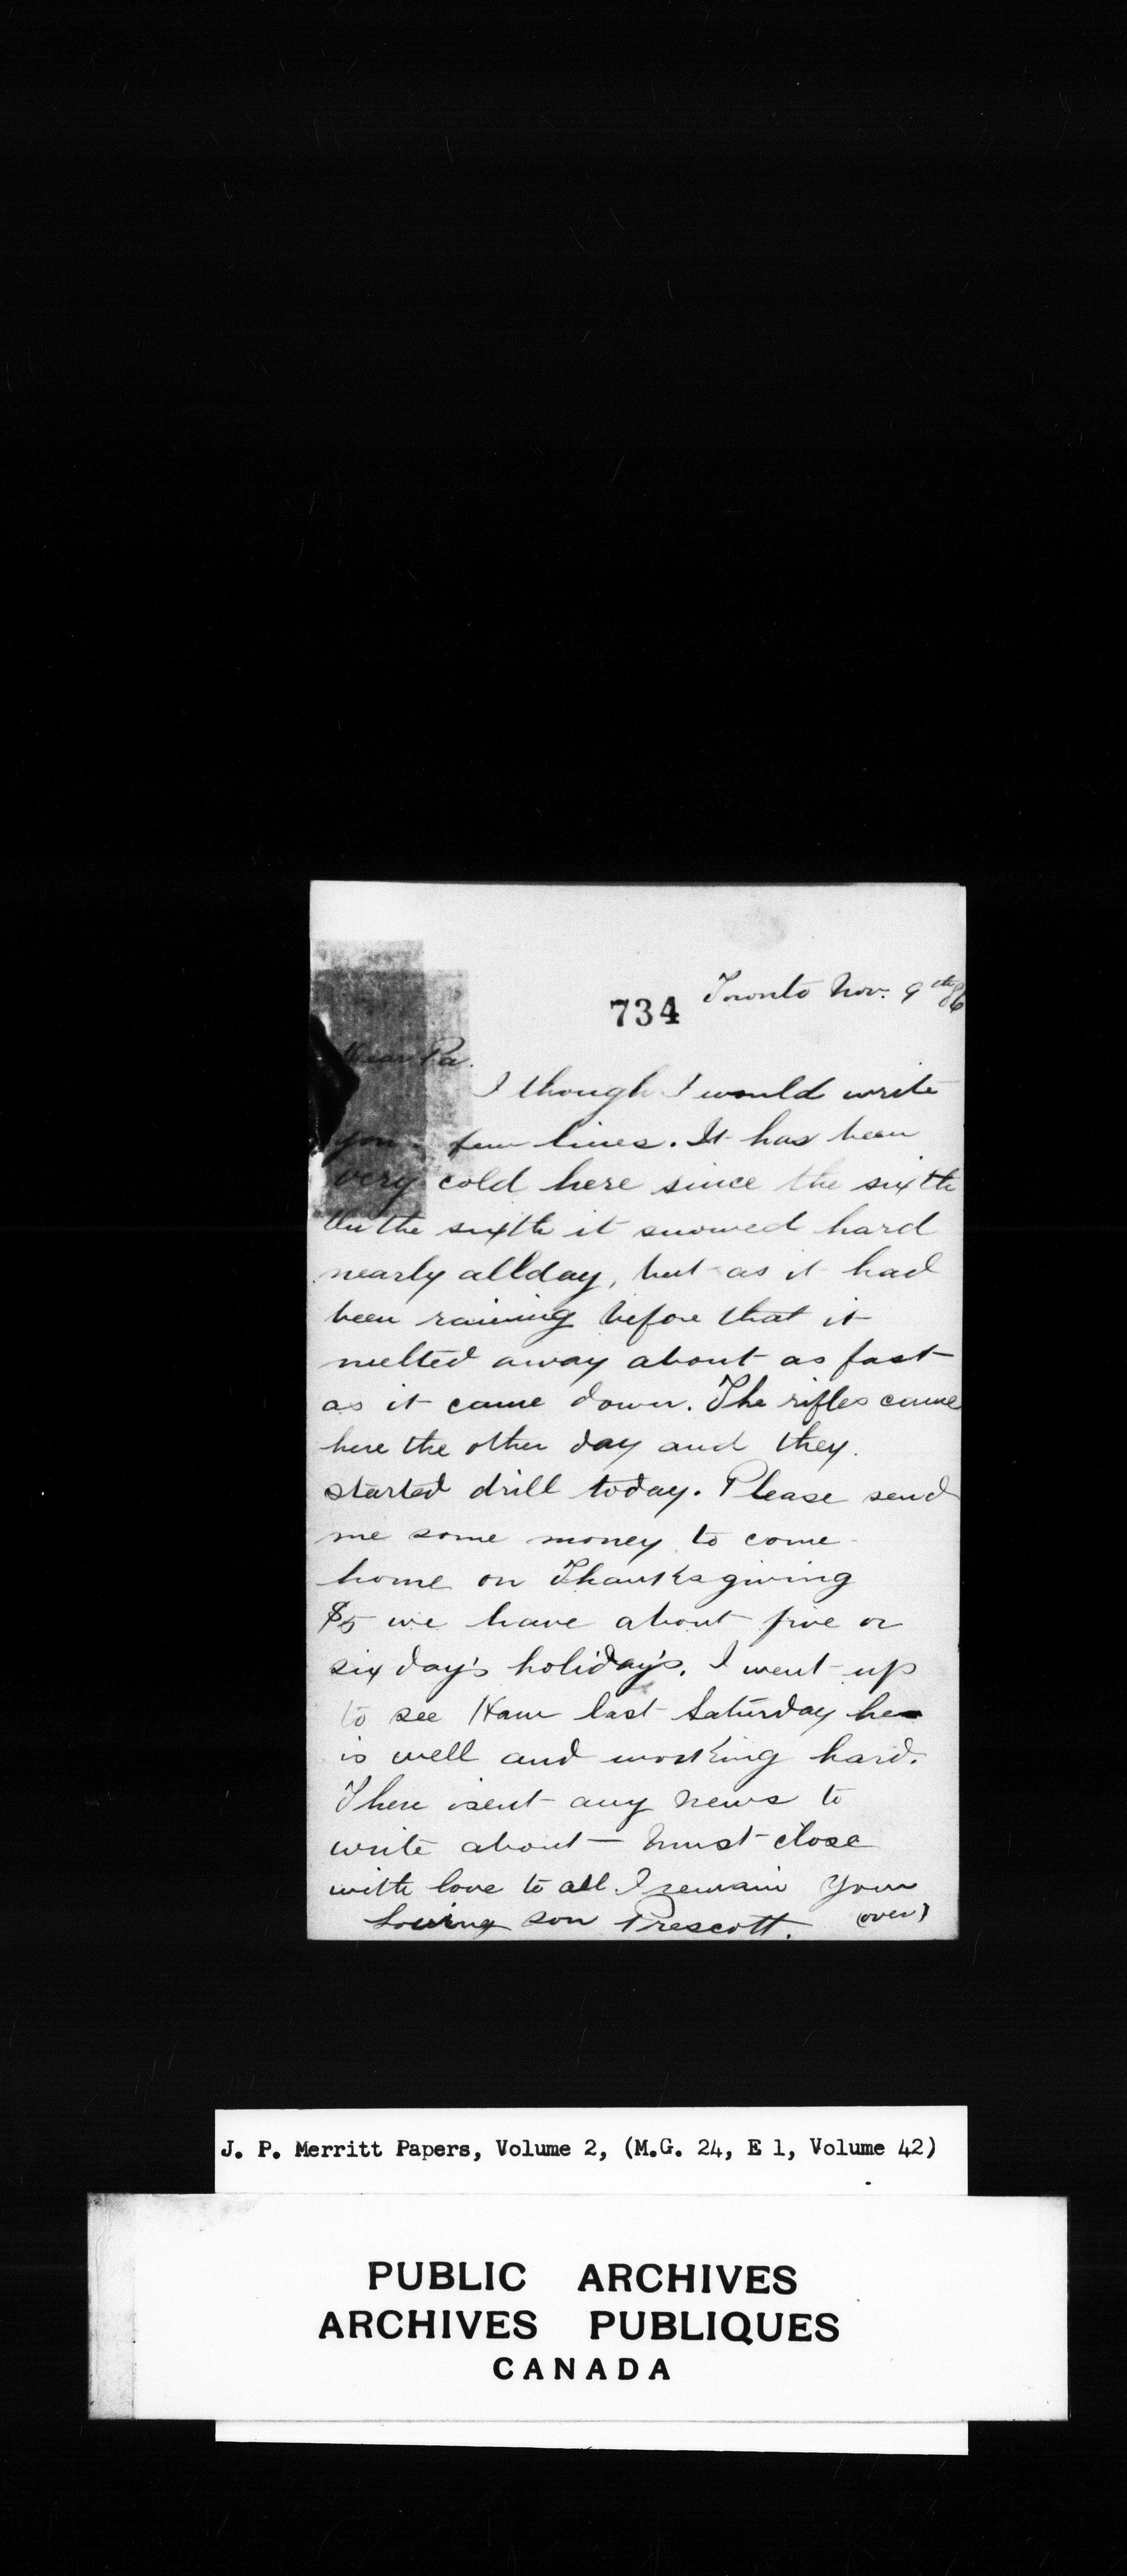 734
Toronto Nov. 9th 86
Dear Pa.
I though I would write
you a few lines. It has been
very cold here since the sixth
On the sixth it snowed hard
nearly allday, but as it had
been raining before that it
melted away about as fast
as it came down. The rifles came
here the other day and they
started drill today. Please send
me some money to come
home on Thanksgiving
$5 we have about five or
six day's holiday's. I went up
to see Ham last Saturday he
is well and working hard.
There isent any news to
write about must close
with love to all I remain Your
Loving son Prescott. (over)
J. P. Merritt Papers, Volume 2, (M.G. 24, E 1, Volume 42)
PUBLIC ARCHIVES
ARCHIVES PUBLIQUES
CANADA